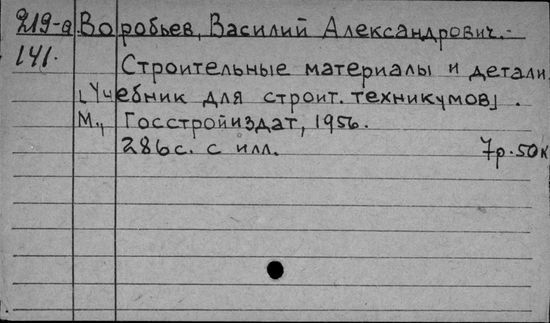 219-а Воробьев, Василий Александрович.-
141. Строительные материалы и детали.
[Учебник для строит. техникумов].
М., Госстройиздат, 1956.
286с. с илл. 7р.50к